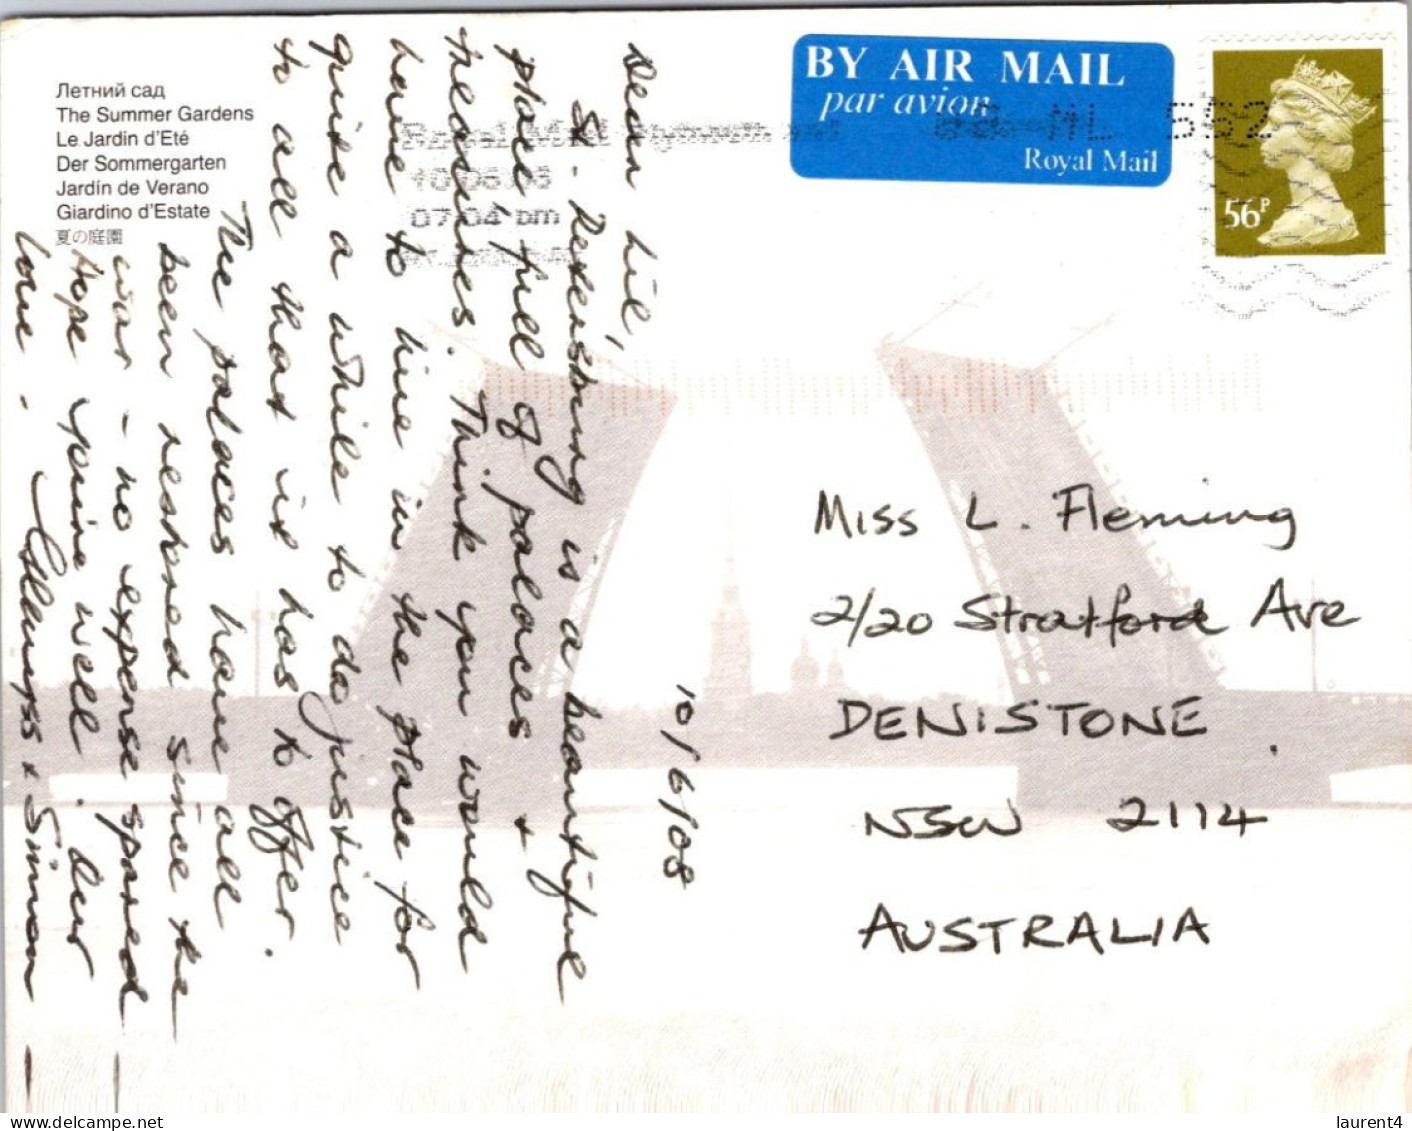 Летний сад
The Summer Gardens
Le Jardin d'Eté
Der Sommergarten
Jardín de Verano
Giardino d'Estate
夏の庭園
BY AIR MAIL
par avion
Royal Mail
56P
Royal Mail Plymouth
10.06.08
07:04 pm
ML 552
10/6/08
Dear Lil,
St. Petersburg is a beautiful
place full of palaces +
treasures. Think you would
have to live in the place for
quite a while to do justice
to all that it has to offer.
The palaces have all
been restored since the
war - no expense spared
Hope you're well. Our
love. & Simon
Miss L. Fleming
2/20 Stratford Ave
DENISTONE
NSW 2114
AUSTRALIA
delcampe.net
laurent4